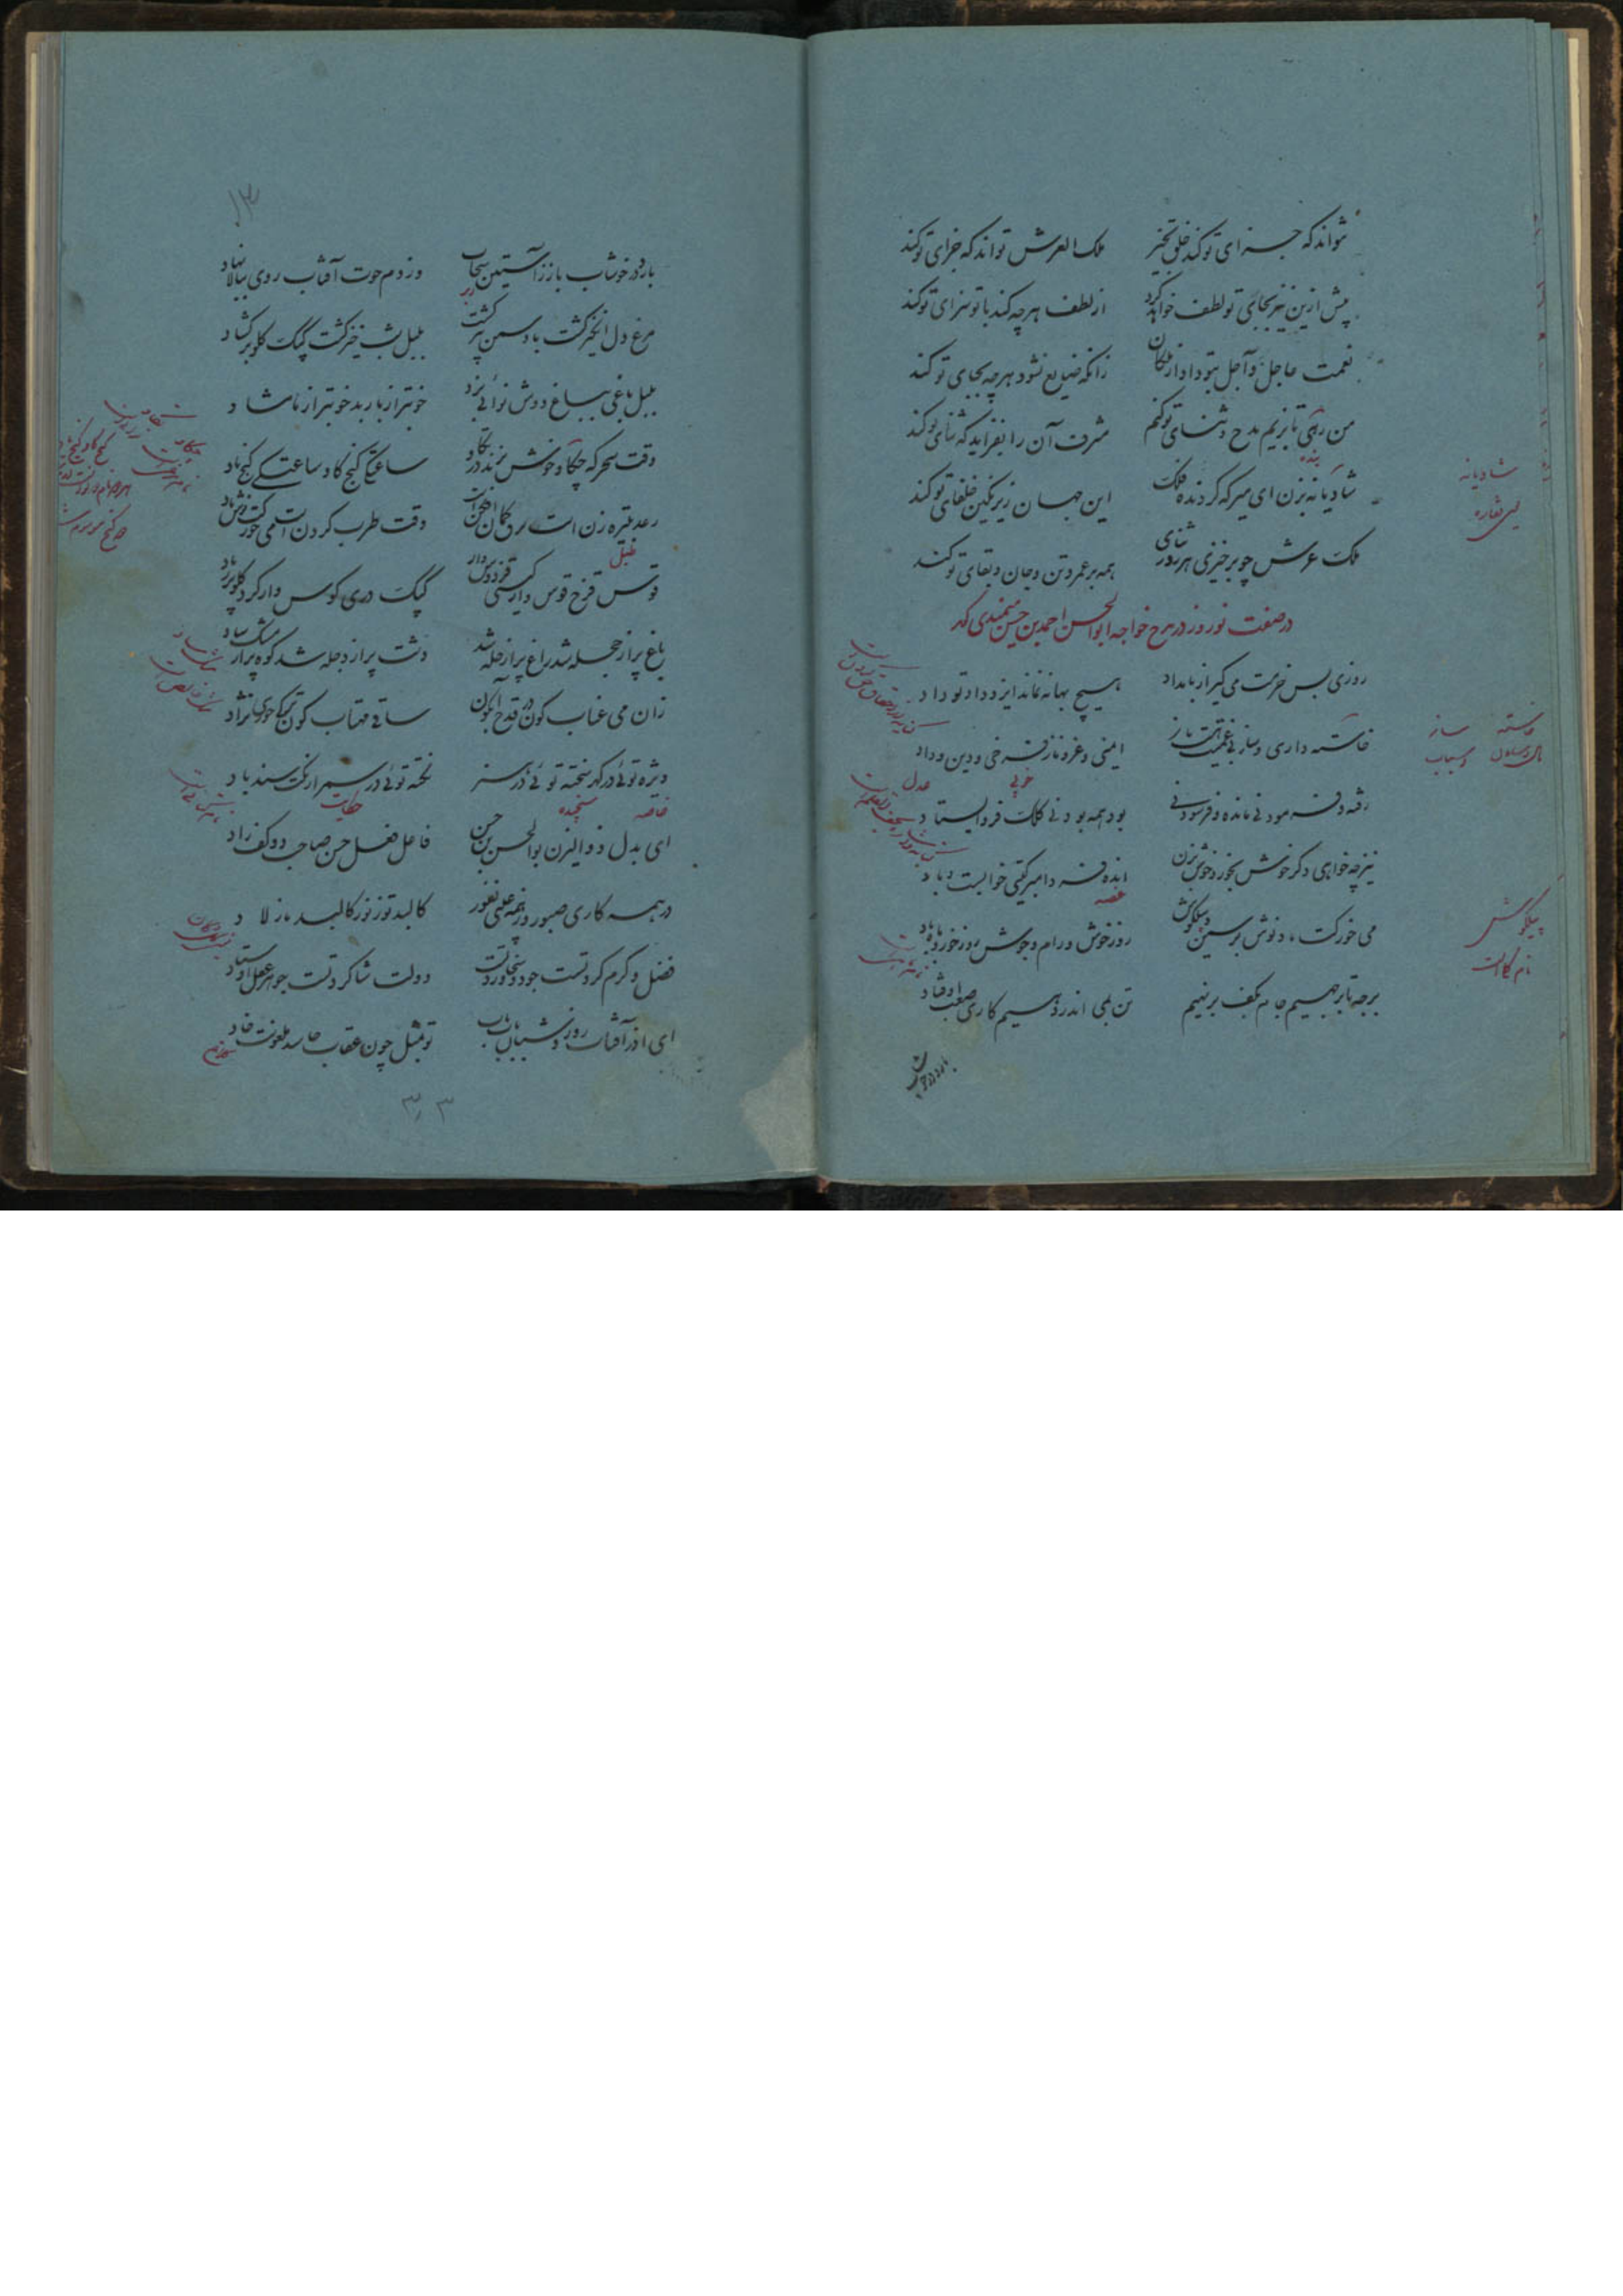 نتواند که جزای تو کند خلق بخیر ملک العرش تواند که جزای تو کند
پیش ازین نیز بجای تو لطف خواهد کرد از لطف هرچه کند با تو سزای تو کند
نعمت عاجل و آجل بتو داد از ملکان زانکه ضایع نشود هرچه بجای تو کند
من رهی تا بزیم مدح و ثنای تو کنم شرف آن را بفزاید که ثنای تو کند
بنده
شادیانه بزن ای میر که گردنده فلک این جهان زیر نگین خلفای تو کند
شادیانه
یعنی نقاره
ملک عرش چو برخیزی هر روز ثنای همه بر عمر و تن و جان و بقای تو کند
در صفت نوروز در مدح خواجه ابوالحسن احمد بن حسن میمندی گوید
روزی بس خرمست می گیر از بامداد هیچ بهانه نماند ایزد داد تو داد
خاسته داری و ساز بی غمیت هست باز ایمنی و عز و ناز فرخی و دین و داد
خوبی
عدل
رفته و فرمودنی مانده و فرسودنی بود همه بودنی کلک فرو ایستاد
نیز چه خواهی دگر خوش بخور و خوش بزن انده فردا مبر گیتی خوابست و باد
غصه
می خور کت باد نوش بر سمن و پیلگوش روز خوش و رام و جوش روز خور و ماه و باد
پیلگوش
نام گلی است
برجه تا برجهیم جام بکف برنهیم تن بمی اندر دهیم کاری صعب اوفتاد
بارد در خوشاب
۱۳
بارد در خوشاب باز ز آستین سحاب وز دم حوت آفتاب روی ببالا نهاد
مرغ دل انگیز گشت باد سمن بیز گشت بلبل شب خیز گشت کبک گلو برگشاد
بلبل باغی بباغ دوش نوائی بزد خوبتر از باربد خوبتر از بامشاد
وقت سحرگه چکاو خوش بزند در تکاو ساعتکی گنج گاو ساعتکی گنج باد
رعد تبیره زن است برق کمان افکن است وقت طرب کردن است می خور کت نوش باد
طبل
قوس قزح قوس وار گیتی فردوس وار کبک دری کوس وار کرد گلو پر ز باد
باغ پر از حجله شد راغ پر از حله شد دشت پر از دجله شد کوه پر از مشک ساد
زان می عناب گون در قدح آبگون ساقی مهتاب گون ترکی حوری نژاد
ویژه توئی در گهر سخته توئی در هنر نکته توئی در سمر از نکت سندباد
خاصه سنجیده حکایت
ای بدل ذوالیزن بوالحسن بن حسن فاعل فعل حسن صاحب دو کف راد
در همه کاری صبور وز همه عیبی نفور کالبد تو ز نور کالبد ما ز لاد
فضل و کرم کرد تست جود و سخا ورد تست دولت شاگرد تست جوهر عقل اوستاد
تو بمثل چون عقاب حاسد ملعونت خاد
۳۳